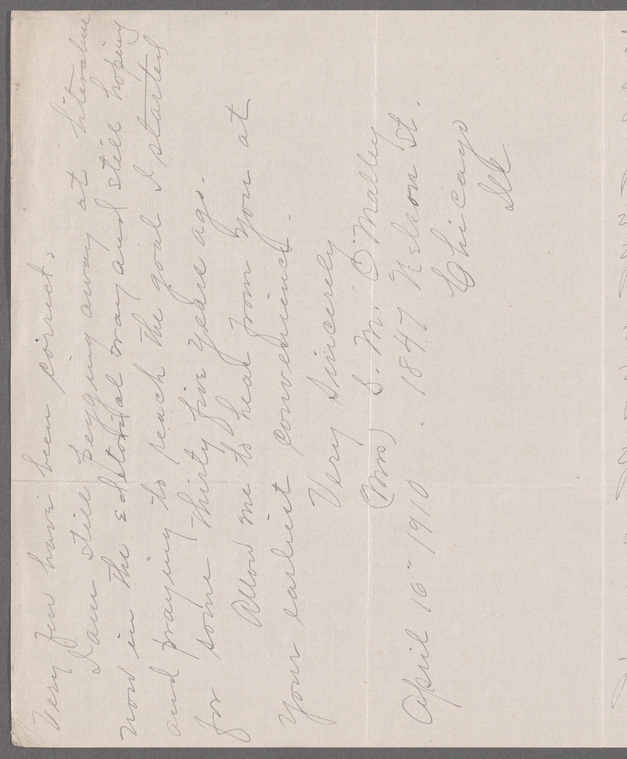 Very few have been correct.
I am still pegging away at literature
now in the editorial way and still hoping
and praying to reach the goal I started
for some thirty five years ago.
Allow me to hear from you at
your earliest convenience.
Very sincerely
(Mrs) S. M. O'Malley
April 16" 1910. 1847 Nelson St.
Chicago
Ill